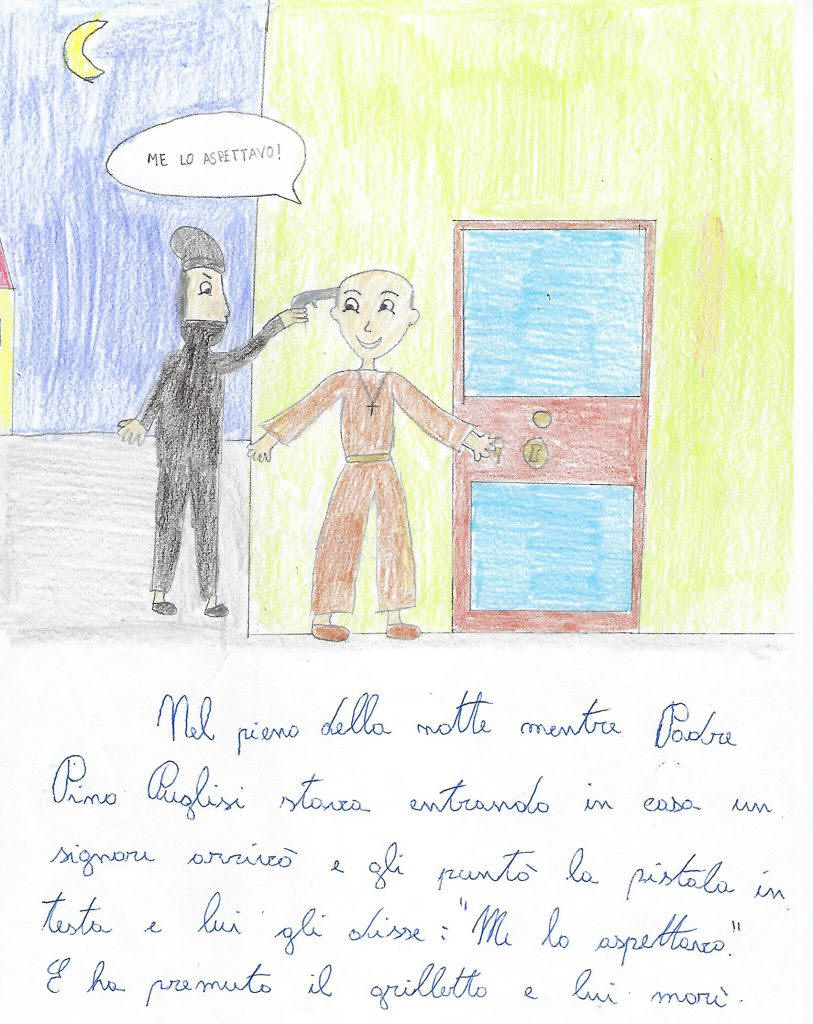 ME LO ASPETTAVO!
Nel pieno della notte mentre Padre
Pino Puglisi stava entrando in casa un
signore arrivò e gli puntò la pistola in
testa e lui gli disse: "Me lo aspettavo."
E ha premuto il grilletto e lui morì.